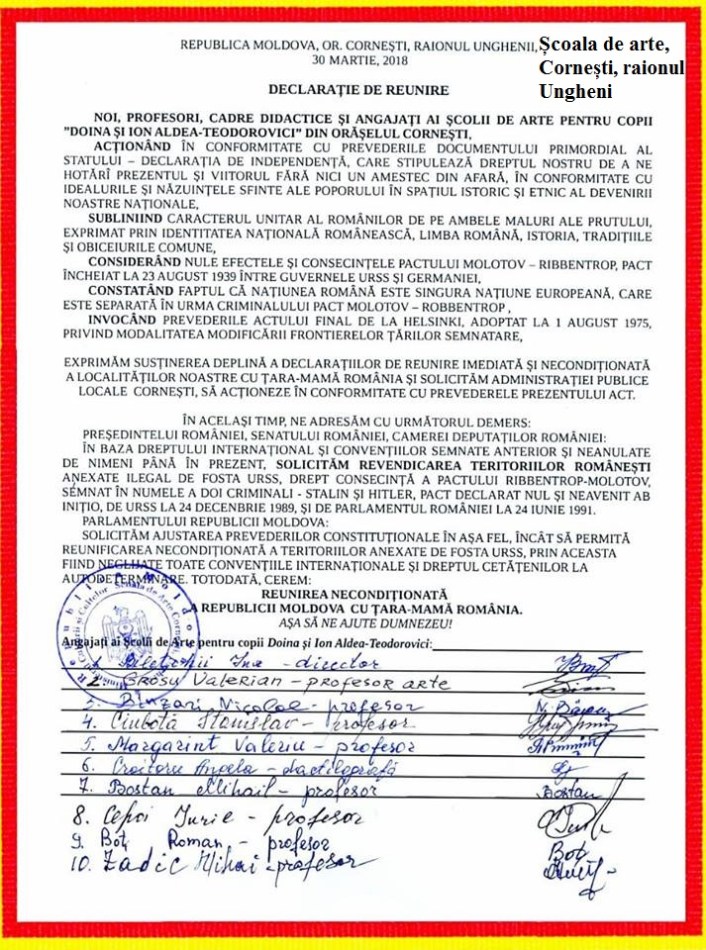 REPUBLICA MOLDOVA, OR. CORNEȘTI, RAIONUL UNGHENI,
30 MARTIE, 2018
Școala de arte,
Cornești, raionul
Ungheni
DECLARAȚIE DE REUNIRE
NOI, PROFESORI, CADRE DIDACTICE ȘI ANGAJAȚI AI ȘCOLII DE ARTE PENTRU COPII
"DOINA ȘI ION ALDEA-TEODOROVICI" DIN ORĂȘELUL CORNEȘTI,
ACȚIONÂND ÎN CONFORMITATE CU PREVEDERILE DOCUMENTULUI PRIMORDIAL AL
STATULUI – DECLARAȚIA DE INDEPENDENȚĂ, CARE STIPULEAZĂ DREPTUL NOSTRU DE A NE
HOTĂRÎ PREZENTUL ȘI VIITORUL FĂRĂ NICI UN AMESTEC DIN AFARĂ, ÎN CONFORMITATE CU
IDEALURILE ȘI NĂZUINȚELE SFINTE ALE POPORULUI ÎN SPAȚIUL ISTORIC ȘI ETNIC AL DEVENIRII
NOASTRE NAȚIONALE,
SUBLINIIND CARACTERUL UNITAR AL ROMÂNILOR DE PE AMBELE MALURI ALE PRUTULUI,
EXPRIMAT PRIN IDENTITATEA NAȚIONALĂ ROMÂNEASCĂ, LIMBA ROMÂNĂ, ISTORIA, TRADIȚIILE
ȘI OBICEIURILE COMUNE,
CONSIDERÂND NULE EFECTELE ȘI CONSECINȚELE PACTULUI MOLOTOV – RIBBENTROP, PACT
ÎNCHEIAT LA 23 AUGUST 1939 ÎNTRE GUVERNELE URSS ȘI GERMANIEI,
CONSTATÂND FAPTUL CĂ NAȚIUNEA ROMÂNĂ ESTE SINGURA NAȚIUNE EUROPEANĂ, CARE
ESTE SEPARATĂ ÎN URMA CRIMINALULUI PACT MOLOTOV – ROBBENTROP ,
INVOCÂND PREVEDERILE ACTULUI FINAL DE LA HELSINKI, ADOPTAT LA 1 AUGUST 1975,
PRIVIND MODALITATEA MODIFICĂRII FRONTIERELOR ȚĂRILOR SEMNATARE,
EXPRIMĂM SUSȚINEREA DEPLINĂ A DECLARAȚIILOR DE REUNIRE IMEDIATĂ ȘI NECONDIȚIONATĂ
A LOCALITĂȚILOR NOASTRE CU ȚARA-MAMĂ ROMÂNIA ȘI SOLICITĂM ADMINISTRAȚIEI PUBLICE
LOCALE CORNEȘTI, SĂ ACȚIONEZE ÎN CONFORMITATE CU PREVEDERILE PREZENTULUI ACT.
ÎN ACELAȘI TIMP, NE ADRESĂM CU URMĂTORUL DEMERS:
PREȘEDINTELUI ROMÂNIEI, SENATULUI ROMÂNIEI, CAMEREI DEPUTAȚILOR ROMÂNIEI:
ÎN BAZA DREPTULUI INTERNAȚIONAL ȘI CONVENȚIILOR SEMNATE ANTERIOR ȘI NEANULATE
DE NIMENI PÂNĂ ÎN PREZENT, SOLICITĂM REVENDICAREA TERITORIILOR ROMÂNEȘTI
ANEXATE ILEGAL DE FOSTA URSS, DREPT CONSECINȚĂ A PACTULUI RIBBENTROP-MOLOTOV,
SEMNAT ÎN NUMELE A DOI CRIMINALI - STALIN ȘI HITLER, PACT DECLARAT NUL ȘI NEAVENIT AB
INIȚIO, DE URSS LA 24 DECENBRIE 1989, ȘI DE PARLAMENTUL ROMÂNIEI LA 24 IUNIE 1991.
PARLAMENTULUI REPUBLICII MOLDOVA:
SOLICITĂM AJUSTAREA PREVEDERILOR CONSTITUȚIONALE ÎN AȘA FEL, ÎNCÂT SĂ PERMITĂ
REUNIFICAREA NECONDIȚIONATĂ A TERITORIILOR ANEXATE DE FOSTA URSS, PRIN ACEASTA
FIIND NEGLIJATE TOATE CONVENȚIILE INTERNAȚIONALE ȘI DREPTUL CETĂȚENILOR LA
AUTODETERMINARE. TOTODATĂ, CEREM:
REUNIREA NECONDIȚIONATĂ
A REPUBLICII MOLDOVA CU ȚARA-MAMĂ ROMÂNIA.
AȘA SĂ NE AJUTE DUMNEZEU!
Angajați ai Școlii de Arte pentru copii Doina și Ion Aldea-Teodorovici:
1. Ina - director
2. Grosu Valerian - profesor arte
3. Bînzari Nicolae - profesor
4. Ciubotă Stanislav - profesor
5. Margarint Valeriu - profesor
6. Croitoru Angela - dactilografă
7. Bostan Mihail - profesor Bostan
8. Cepoi Iurie - profesor
9. Boț Roman - profesor Boț
10. Zadic Mihai - profesor